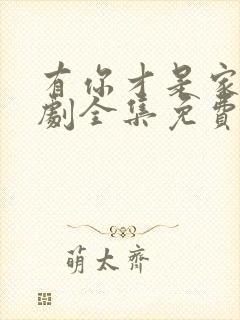 有你才是家
劇全集免費
萌太齊